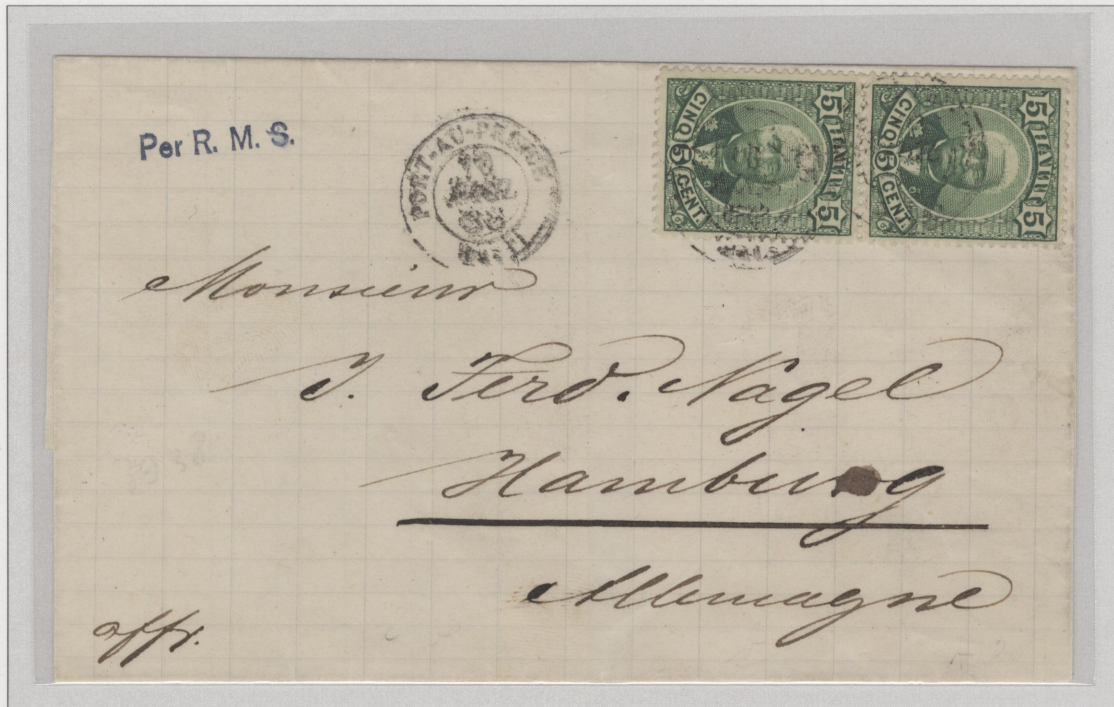 Per R. M. S.
PORT-AU-PRINCE
HAITI
5 HAYTI 5
CINQ 5 CENT.
5 HAYTI 5
CINQ 5 CENT.
Monsieur
J. Ferd. Nagel
Hamburg
Allemagne
affr.